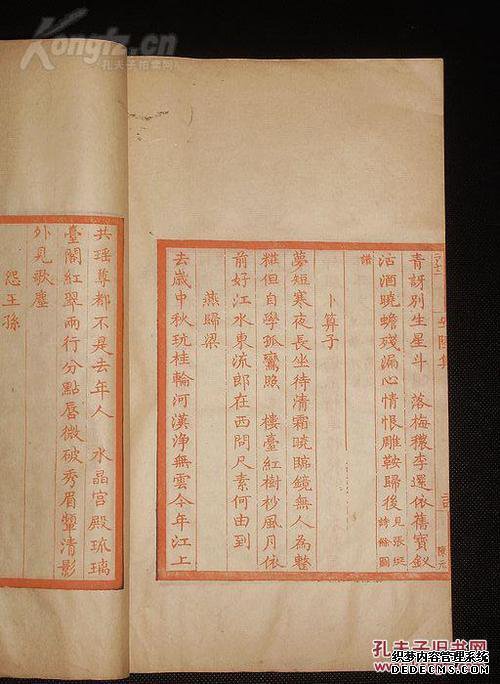 Kongfz.cn
青訝別生星斗　落梅穠李還依舊寶釵
沽酒曉蟾殘漏心情恨雕鞍歸後
見張
詩餘圖
譜
卜算子
夢短寒夜長坐待清霜曉臨鏡無人為整
粧但自學孤鸞照　樓臺紅樹杪風月依
前好江水東流郎在西問尺素何由到
燕歸梁
去歲中秋玩桂輪河漢淨無雲今年江上
共瑤尊都不是去年人　水晶宮殿琉璃
臺閣紅翠兩行分點唇微破秀眉顰清影
外見歌塵
怨王孫
孔夫子旧书网
织梦内容管理系统